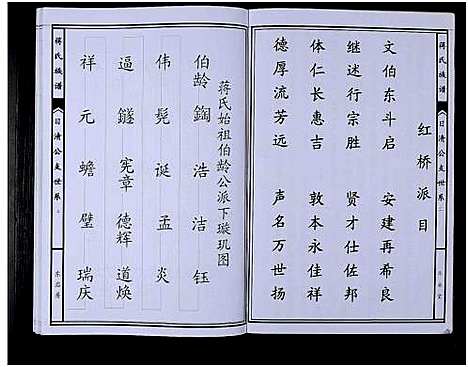 蒋氏族谱
日清公支世系
红桥派目
文伯东斗启 安建再希良
继述行宗胜 贤才仕佐邦
体仁长惠吉 敦本永佳祥
德厚流芳远 声名万世扬
蒋氏始祖伯龄公派下璇玑图
伯龄 浩 洁 钰
伟 诞 孟 炎
逼 鐩 宪章 德辉 道焕
祥 元 蟾 璧 瑞庆
蒋氏族谱
日清公支世系